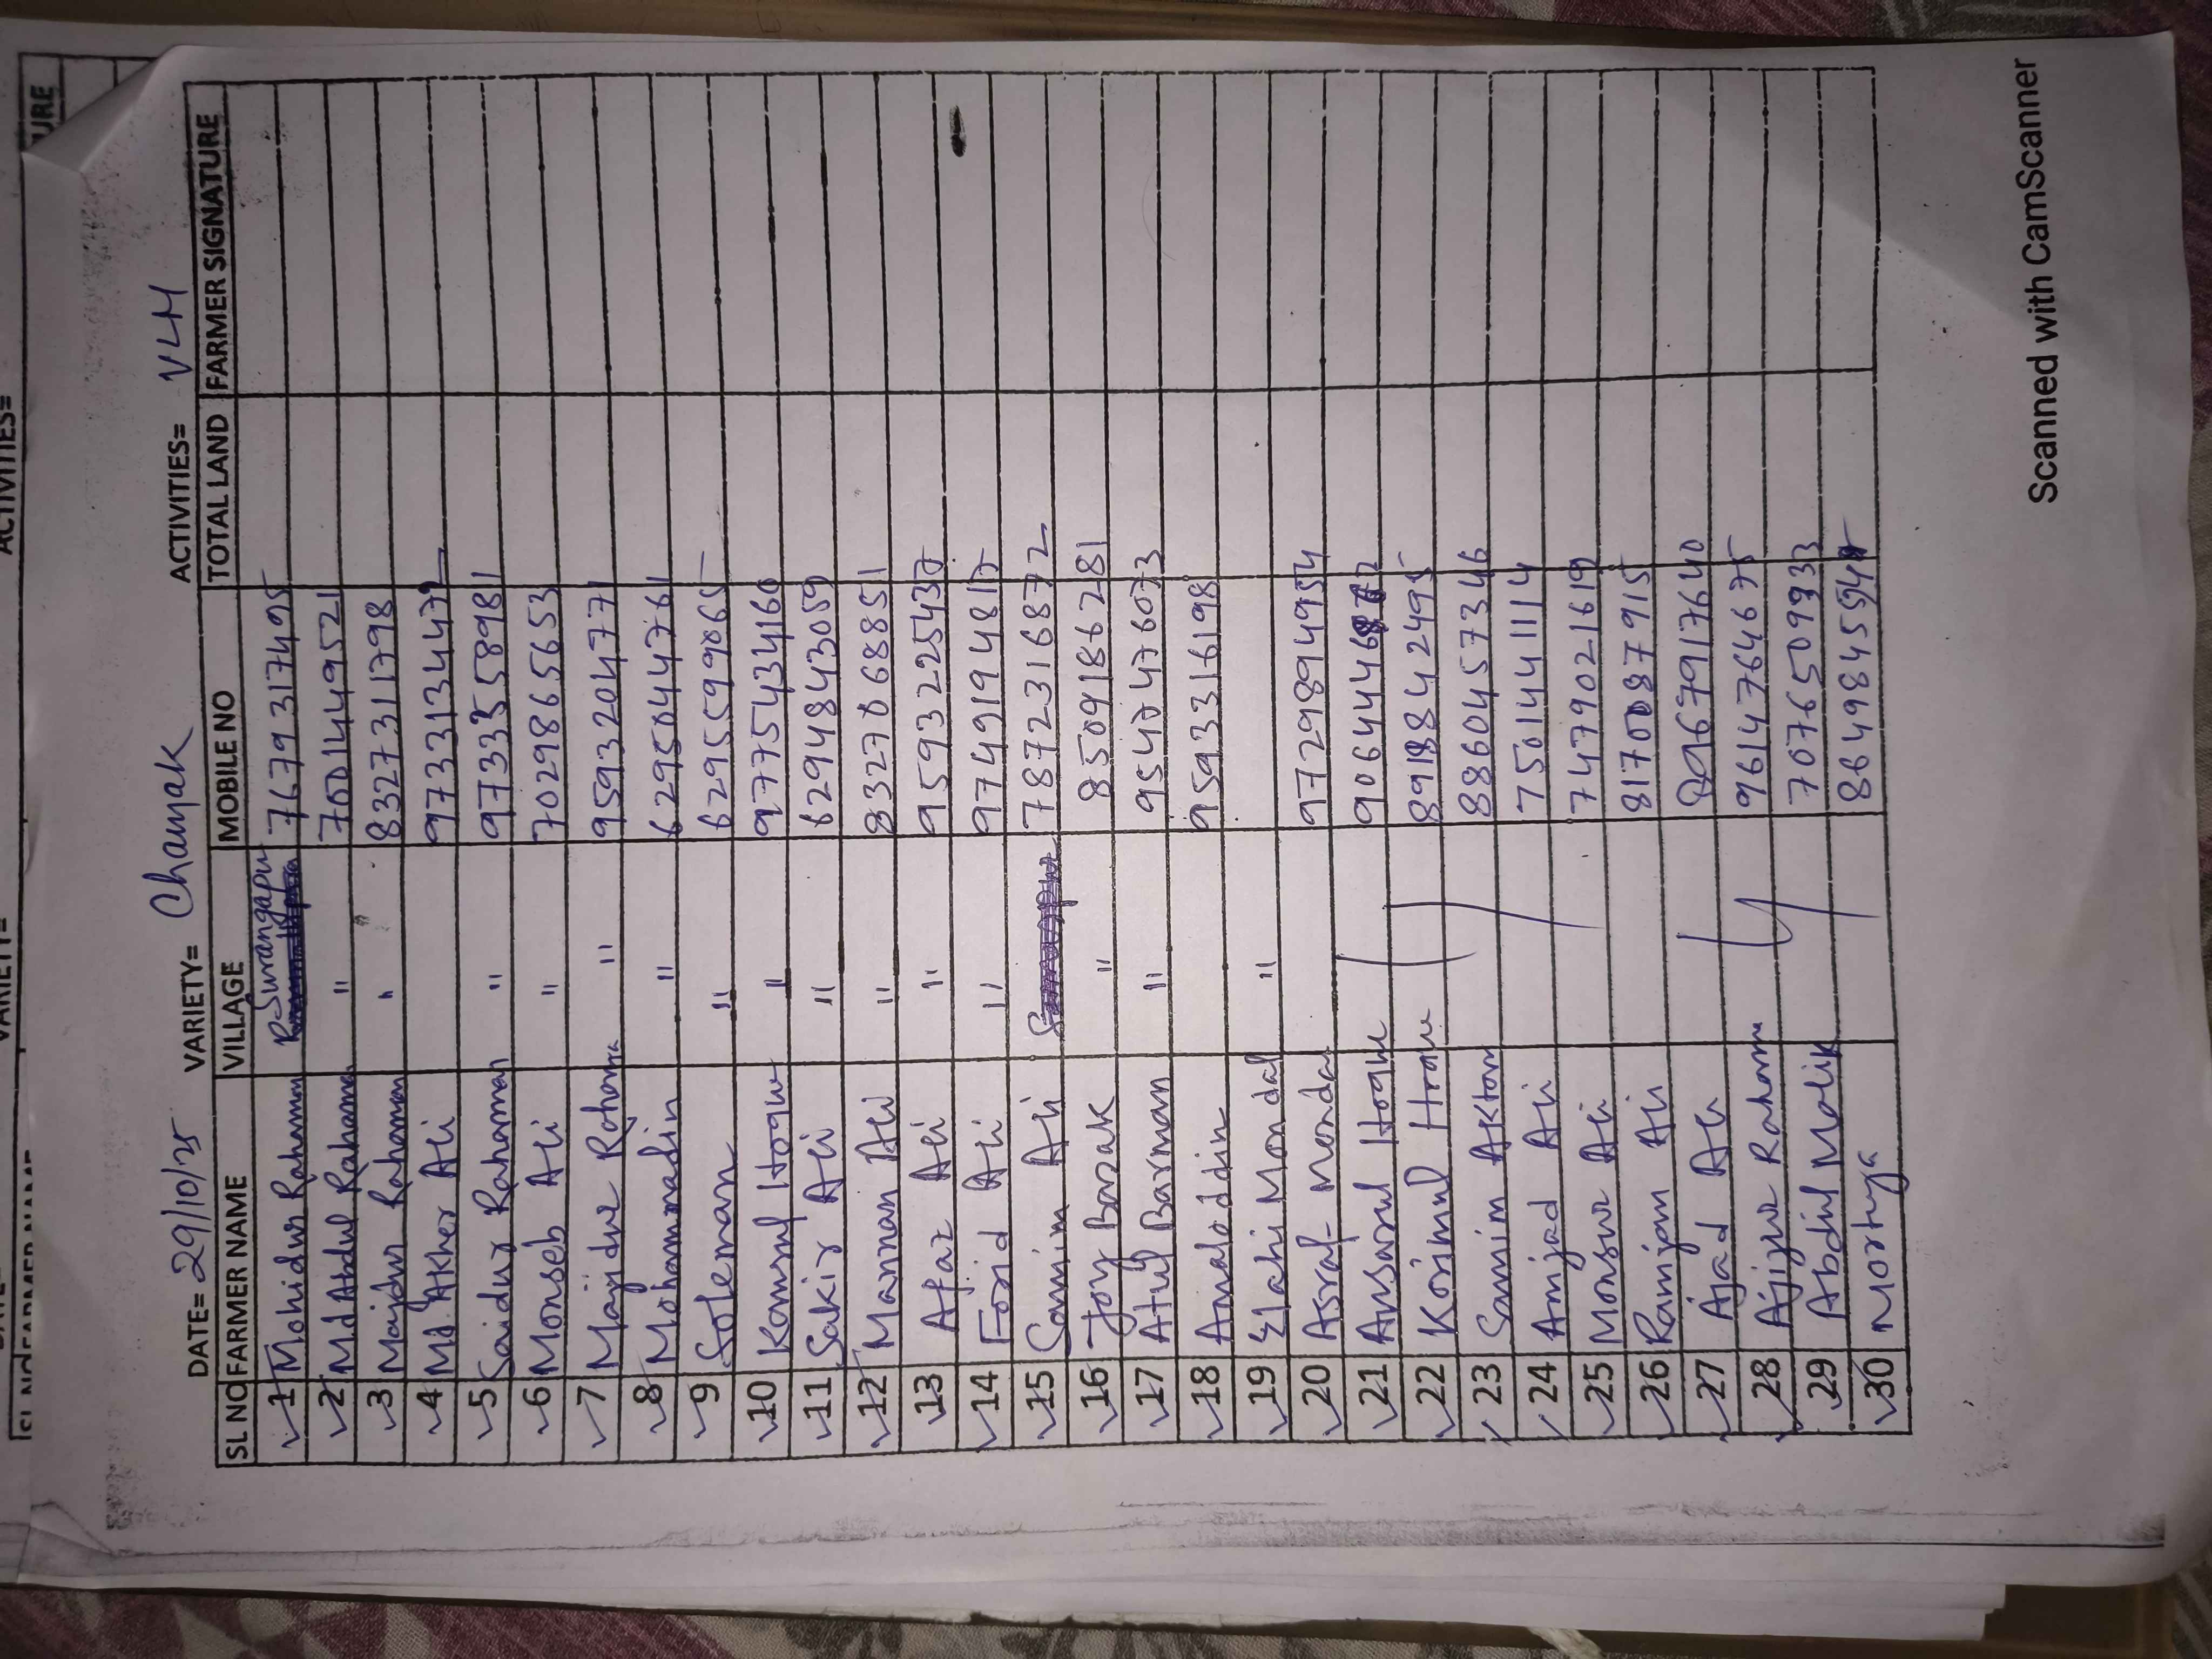 DATE= 29/10/25 VARIETY= Chamak ACTIVITIES= VLM
SL NO FARMER NAME VILLAGE MOBILE NO TOTAL LAND FARMER SIGNATURE
1 Mohidur Rahaman R-Surangapur 7679317495
2 Md Abdul Rahaman " 7001449521
3 Majdur Rahaman " 8327311798
4 Md. Akher Ali 9733134472
5 Saidur Rahaman " 9733558981
6 Monseb Ali " 7029865653
7 Majidur Rahama " 9593204777
8 Mohammadin " 6295044761
9 Soleman " 6295599065
10 Kamrul Hoque " 9775434160
11 Sakir Ali " 6294843059
12 Mannan Ali " 8327068851
13 Afaz Ali " 9593225437
14 Forid Ali " 9749194817
15 Samim Ali 7872316872
16 Joy Basak " 8509186281
17 Atul Barman " 9547476073
18 Amaloddin 9593316198
19 Elahi Mondal "
20 Asraf Mondal 9729894954
21 Ansarul Hoque
22 Korimul Hoque 8918842495
23 Samim Aktar 8860457346
24 Amjad Ali 7501441114
25 Monsur Ali 7479021619
26 Ramjan Ali 8170087915
27 Ajad Ali
28 Ajijur Raham 9614764675
29 Abdul Malik 7076509933
30 Mortuja
Scanned with CamScanner
ACTIVITIES=
VARIETY=